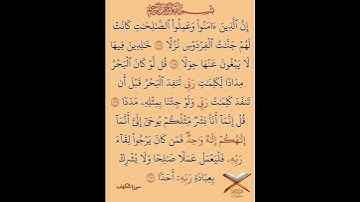 بِسْمِ ٱللَّهِ ٱلرَّحْمَٰنِ ٱلرَّحِيمِ
إِنَّ ٱلَّذِينَ ءَامَنُوا۟ وَعَمِلُوا۟ ٱلصَّٰلِحَٰتِ كَانَتْ
لَهُمْ جَنَّٰتُ ٱلْفِرْدَوْسِ نُزُلًا ١٠٧ خَٰلِدِينَ فِيهَا
لَا يَبْغُونَ عَنْهَا حِوَلًا ١٠٨ قُل لَّوْ كَانَ ٱلْبَحْرُ
مِدَادًا لِّكَلِمَٰتِ رَبِّى لَنَفِدَ ٱلْبَحْرُ قَبْلَ أَن
تَنفَدَ كَلِمَٰتُ رَبِّى وَلَوْ جِئْنَا بِمِثْلِهِۦ مَدَدًا ١٠٩ قُلْ
إِنَّمَآ أَنَا۠ بَشَرٌ مِّثْلُكُمْ يُوحَىٰٓ إِلَىَّ أَنَّمَآ
إِلَٰهُكُمْ إِلَٰهٌ وَٰحِدٌ ۖ فَمَن كَانَ يَرْجُوا۟ لِقَآءَ
رَبِّهِۦ فَلْيَعْمَلْ عَمَلًا صَٰلِحًا وَلَا يُشْرِكْ
بِعِبَادَةِ رَبِّهِۦٓ أَحَدًۢا ١١٠
سورة الكهف